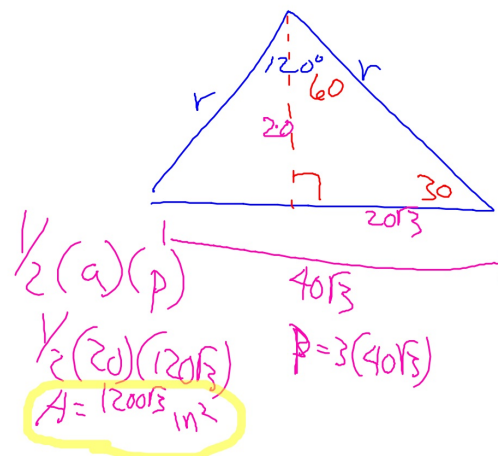 120°
r
r
60
20
30
20√3
40√3
1/2 (a)(p)
1/2(20)(120√3)
P=3(40√3)
A=1200√3 in²